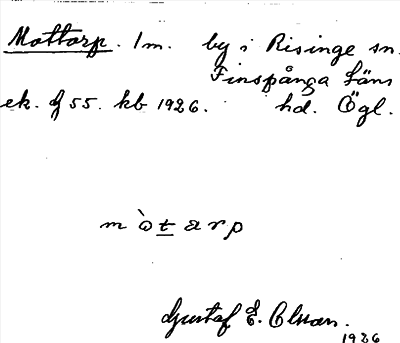 Mottorp. 1 m. by i Risinge sn.
Finspånga läns
ek. 55. kb 1926. hd. Ögl.
m ò t a r p
Gustaf E. Olsson.
1926